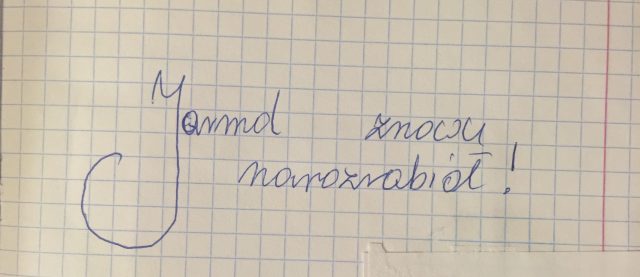 Jarmol znowu
narozrabiał!